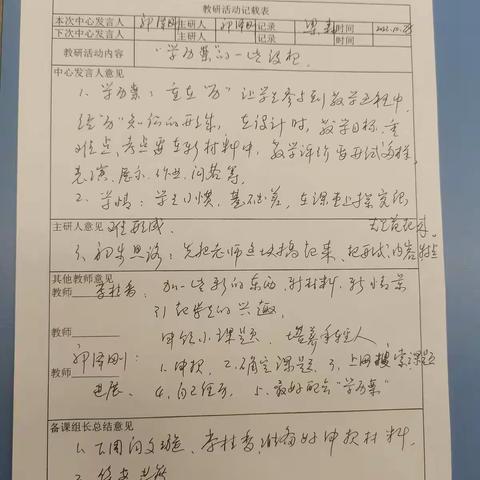 教研活动记载表
本次中心发言人 郭泽刚 主研人 郭泽刚 记录 时间
下次中心发言人 主研人 记录 时间
教研活动内容 "学历案"的一些设想
中心发言人意见
1、学历案：重在"历"让学生参与到教学过程中
经"历"知识的形成，在设计时，教学目标、重
难点、考点要在新材料中，教学评价要形式多样，
表演、展示、作业、问答等。
2、学情：学生习惯、基础差，在课堂上探究很
主研人意见 难形成
3、初步思路：先把老师这块搞起来、把形式、内容
其他教师意见
教师 李桂香：加一些新的东西、新材料、新情景
引起学生的兴趣。
教师 申领小课题、培养年轻人
郭泽刚：
教师 1、申报 2、确定课题、3、上网搜索课题
进展、4、自己任务 5、最好配合"学历案"
备课组长总结意见
1、下周闫文璇、李桂香准备好申报材料。
2、